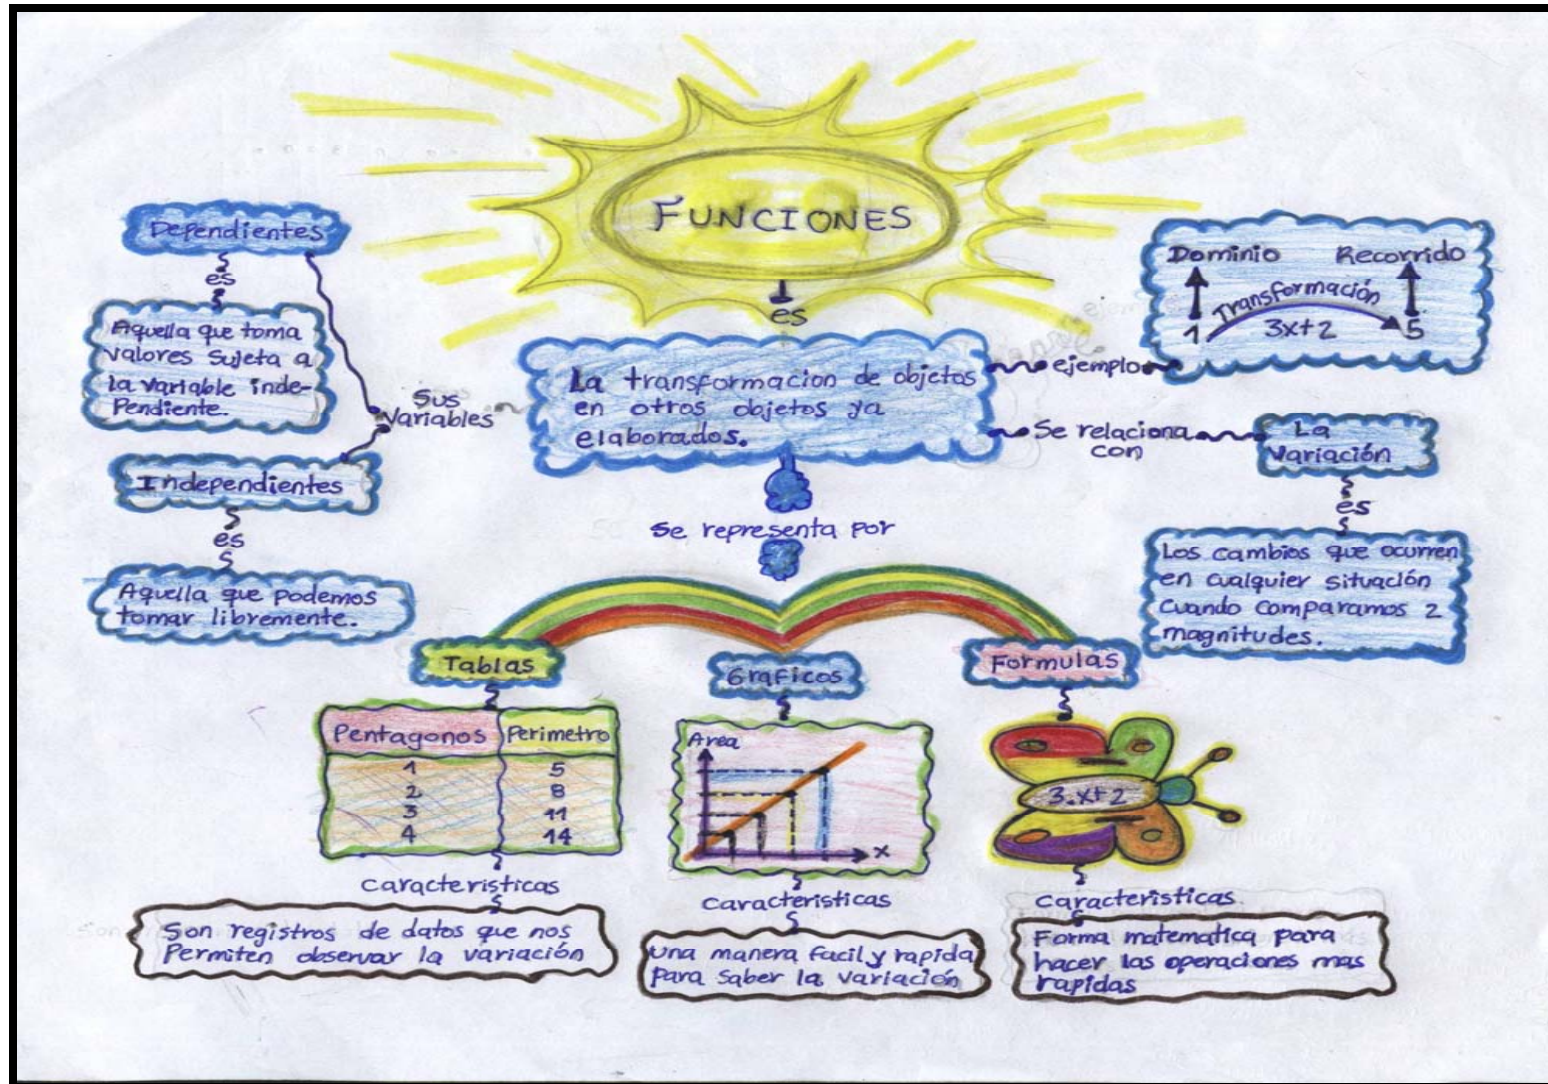 FUNCIONES
es
La transformacion de objetos
en otros objetos ya
elaborados.
Sus
Variables
Dependientes
es
Aquella que toma
valores sujeta a
la variable inde-
pendiente.
Independientes
es
Aquella que podemos
tomar libremente.
ejemplo
Dominio Recorrido
Transformación
1 3x+2 5
Se relaciona
con
La
Variación
es
Los cambios que ocurren
en cualquier situación
cuando comparamos 2
magnitudes.
Se representa por
Tablas
Pentagonos Perimetro
1 5
2 8
3 11
4 14
caracteristicas
Son registros de datos que nos
Permiten observar la variación
Graficos
Area
x
caracteristicas
una manera facil y rapida
para saber la variación
Formulas
3.x+2
caracteristicas
Forma matematica para
hacer las operaciones mas
rapidas